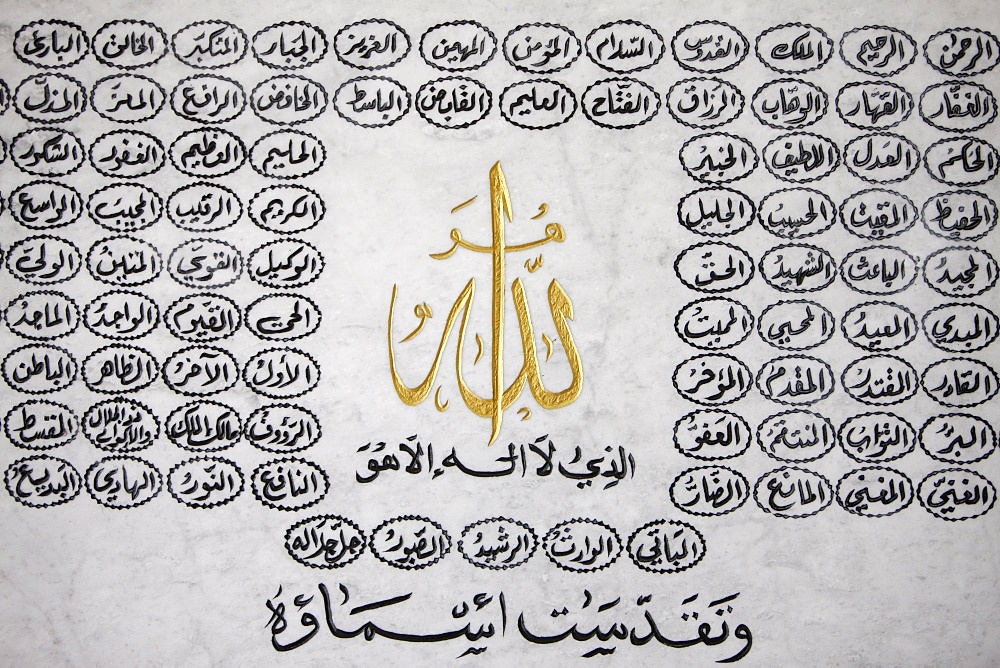 الرحمن الرحيم الملك القدوس السلام المؤمن المهيمن العزيز الجبار المتكبر الخالق البارئ
الغفار القهار الوهاب الرزاق الفتاح العليم القابض الباسط الخافض الرافع المعز المذل
الحكم العدل اللطيف الخبير الحليم العظيم الغفور الشكور
الحفيظ المقيت الحسيب الجليل الكريم الرقيب المجيب الواسع
المجيد الباعث الشهيد الحق الوكيل القوي المتين الولي
المبدي المعيد المحيي المميت الحي القيوم الواجد الماجد
القادر المقتدر المقدم المؤخر الأول الآخر الظاهر الباطن
البر التواب المنتقم العفو الرؤوف مالك الملك ذو الجلال والإكرام المقسط
الغني المغني المانع الضار النافع النور الهادي البديع
هو الله
الذي لا اله إلا هو
الباقي الوارث الرشيد الصبور جل جلاله
وتقدست أسماؤه